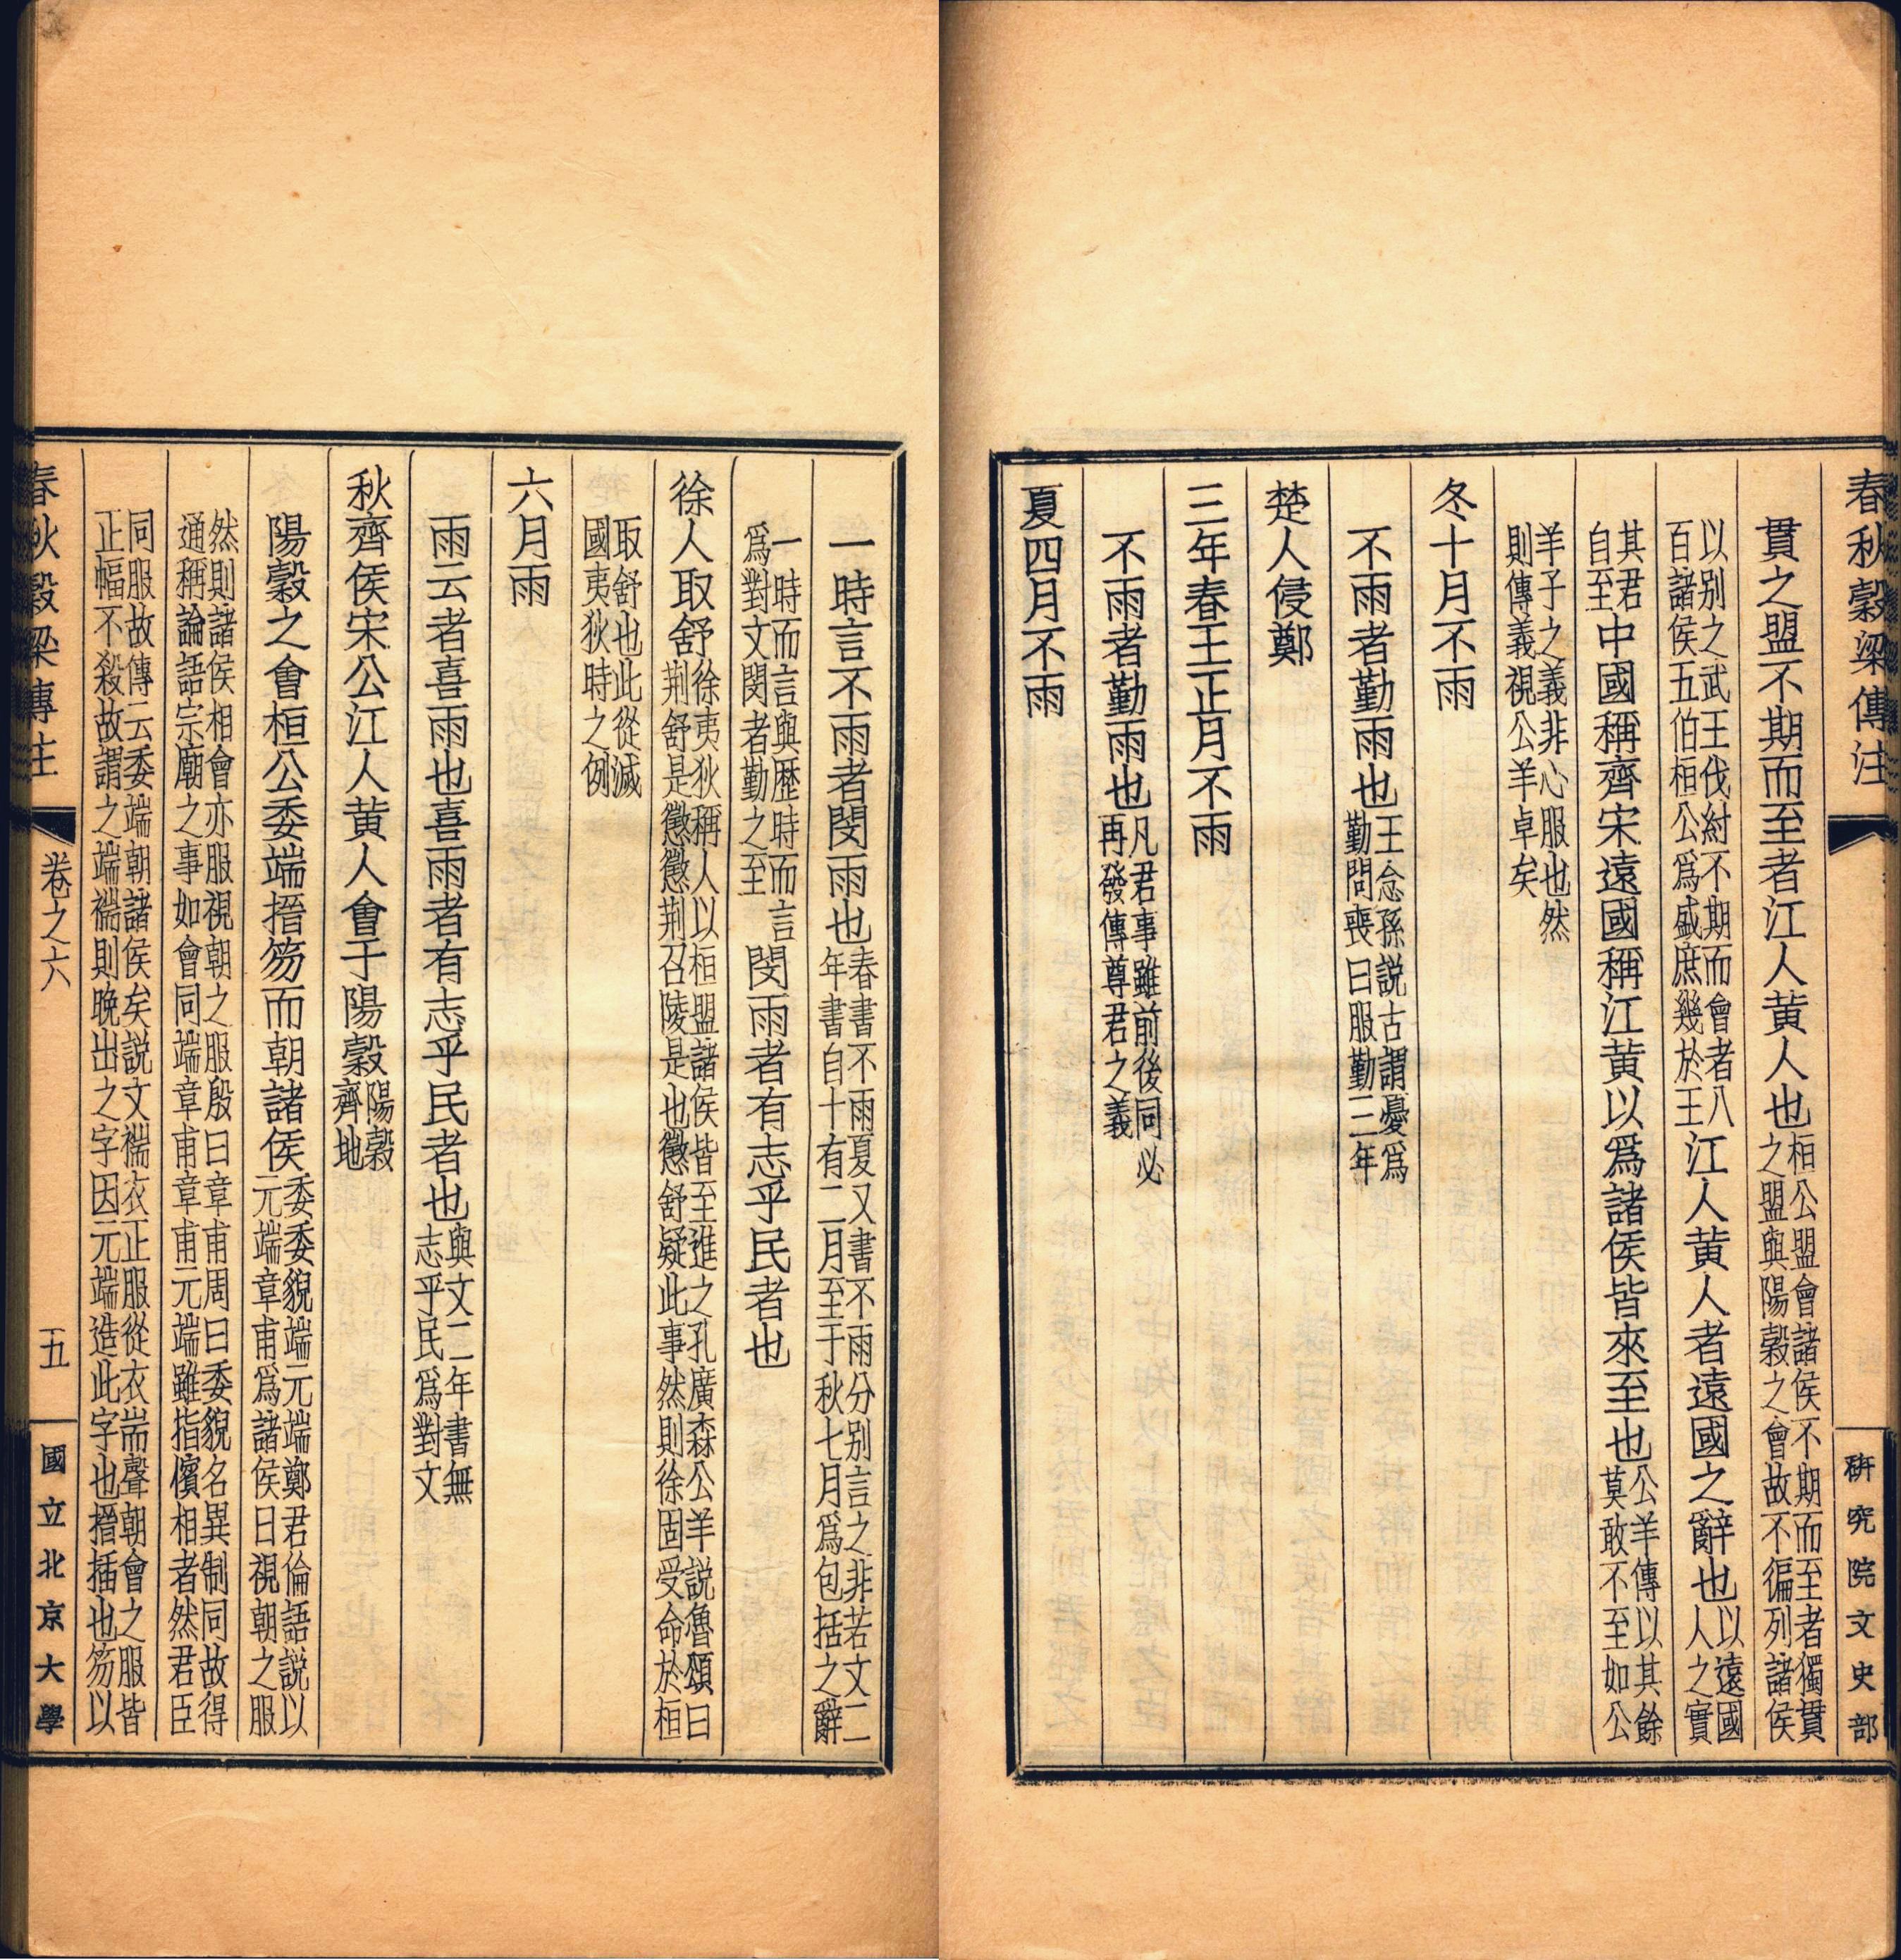 春秋穀梁傳注
研究院文史部
貫之盟不期而至者江人黃人也桓公盟會諸侯不期而至者獨貫之盟與陽穀之會故不徧列諸侯
以別之武王伐紂不期而會者八百諸侯五伯桓公爲盛庶幾於王江人黃人者遠國之辭也以遠國人之實
其君自至中國稱齊宋遠國稱江黃以爲諸侯皆來至也公羊傳以其餘莫敢不至如公
羊子之義非心服也然則傳義視公羊卓矣
冬十月不雨
不雨者勤雨也王念孫説古謂憂爲勤問喪曰服勤三年
楚人侵鄭
三年春王正月不雨
不雨者勤雨也凡君事雖前後同必再發傳尊君之義
夏四月不雨
一時言不雨者閔雨也春書不雨夏又書不雨分別言之非若文二年書自十有二月至于秋七月爲包括之辭
一時而言與歷時而言爲對文閔者勤之至閔雨者有志乎民者也
徐人取舒徐夷狄稱人以桓盟諸侯皆至進之孔廣森公羊説魯頌曰荆舒是懲懲荆召陵是也懲舒疑此事然則徐固受命於桓
取舒也此從滅國夷狄時之例
六月雨
雨云者喜雨也喜雨者有志乎民者也與文二年書無志乎民爲對文
秋齊侯宋公江人黃人會于陽穀陽穀齊地
陽穀之會桓公委端搢笏而朝諸侯委委貌端元端鄭君倫語説以元端章甫爲諸侯日視朝之服
然則諸侯相會亦服視朝之服殷曰章甫周曰委貌名異制同故得通稱論語宗廟之事如會同端章甫章甫元端雖指儐相者然君臣
同服故傳云委端朝諸侯矣説文褍衣正服從衣耑聲朝會之服皆正幅不殺故謂之端褍則晚出之字因元端造此字也搢插也笏以
春秋穀梁傳注
卷之六
五
國立北京大學